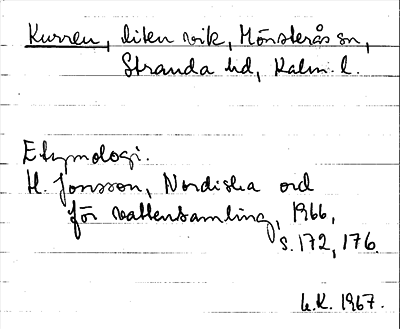 Kurren, liten vik, Mönsterås sn,
Stranda hd, Kalm. l.
Etymologi.
H. Jonsson, Nordiska ord
för vattensamling, 1966,
s. 172, 176.
G.K. 1967.